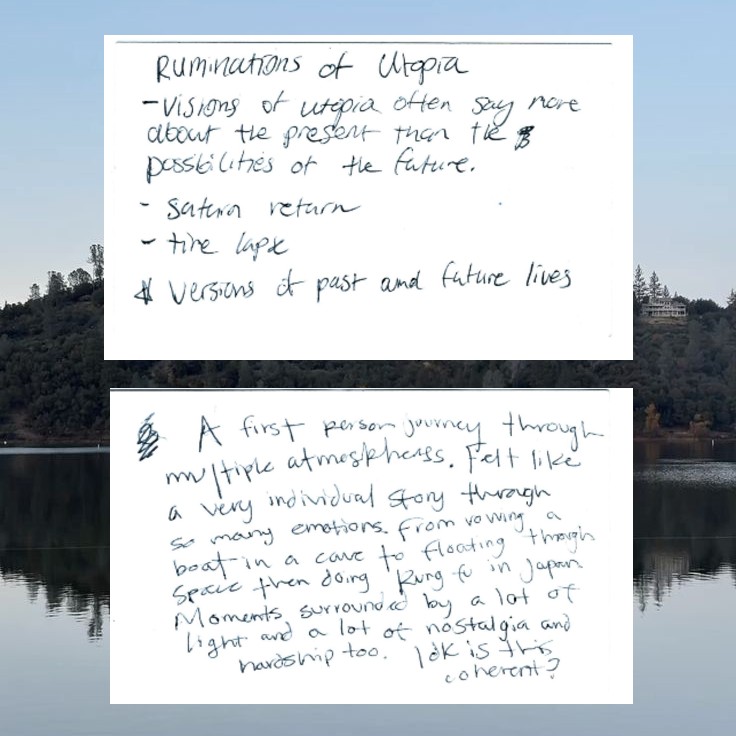 Ruminations of Utopia
- Visions of utopia often say more
about the present than the
possibilities of the future.
- Saturn return
- time lapse
Versions of past and future lives
A first person journey through
multiple atmospheres. Felt like
a very individual story through
so many emotions. From rowing a
boat in a cave to floating through
space then doing kung fu in Japan
Moments surrounded by a lot of
light and a lot of nostalgia and
hardship too. Idk is this
coherent?